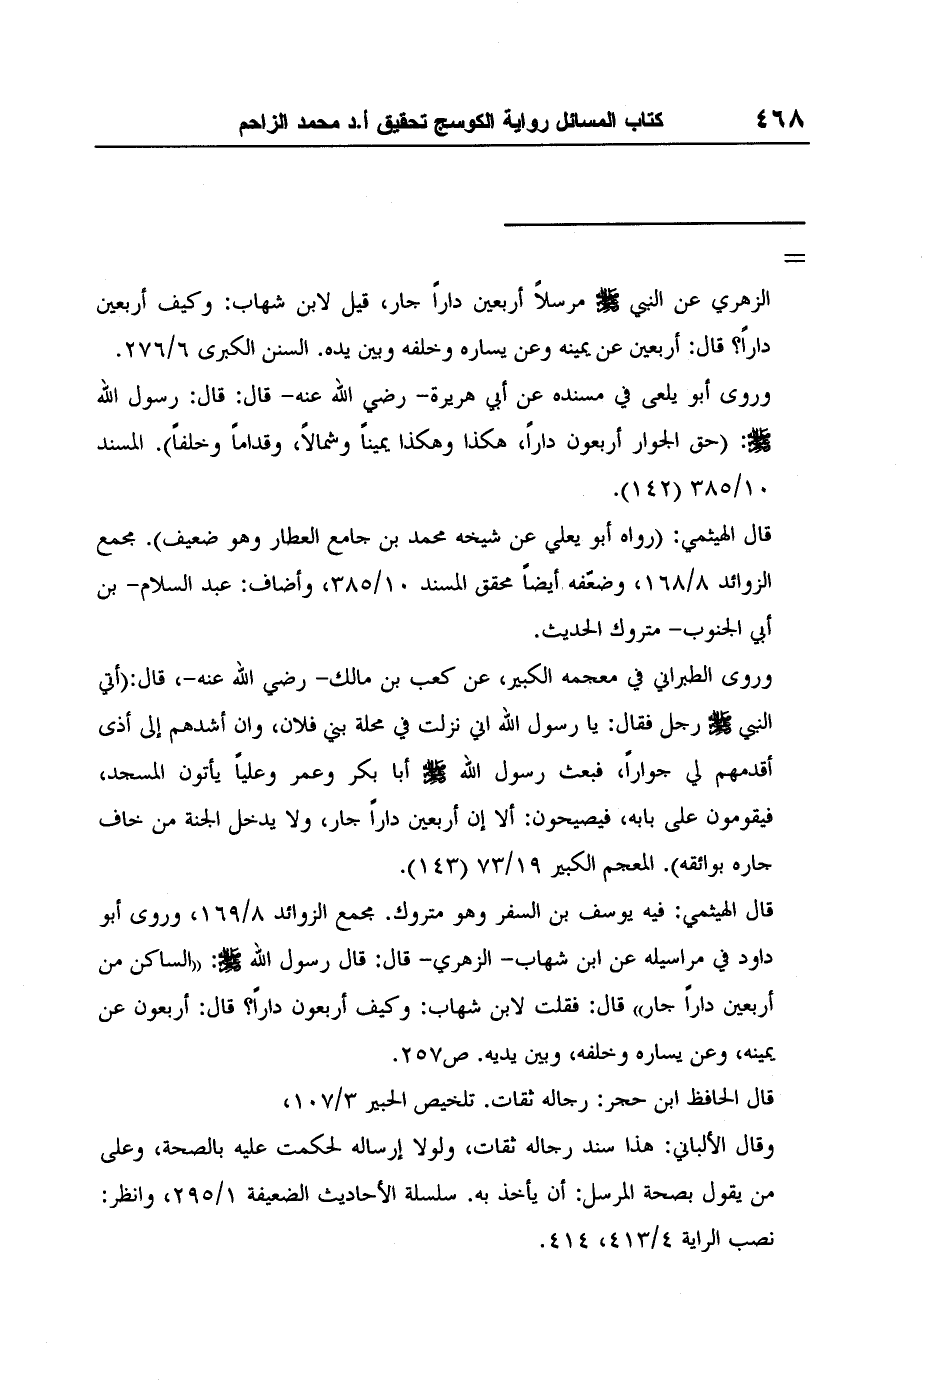 ٤٦٨ كتاب المسائل رواية الكوسج تحقيق أ.د محمد الزاحم
=
الزهري عن النبي ﷺ مرسلاً أربعين داراً جار، قيل لابن شهاب: وكيف أربعين
داراً؟ قال: أربعين عن يمينه وعن يساره وخلفه وبين يده. السنن الكبرى ٢٧٦/٦.
وروى أبو يلعى في مسنده عن أبي هريرة- رضي الله عنه- قال: قال: رسول الله
ﷺ: (حق الجوار أربعون داراً، هكذا وهكذا يميناً وشمالاً، وقداماً وخلفاً). المسند
٣٨٥/١٠ (١٤٢).
قال الهيثمي: (رواه أبو يعلي عن شيخه محمد بن جامع العطار وهو ضعيف). مجمع
الزوائد ١٦٨/٨، وضعّفه أيضاً محقق المسند ٣٨٥/١٠، وأضاف: عبد السلام- بن
أبي الجنوب- متروك الحديث.
وروى الطبراني في معجمه الكبير، عن كعب بن مالك- رضي الله عنه-، قال:(أتي
النبي ﷺ رجل فقال: يا رسول الله اني نزلت في محلة بني فلان، وان أشدهم إلى أذى
أقدمهم لي جواراً، فبعث رسول الله ﷺ أبا بكر وعمر وعلياً يأتون المسجد،
فيقومون على بابه، فيصيحون: ألا إن أربعين داراً جار، ولا يدخل الجنة من خاف
جاره بوائقه). المعجم الكبير ٧٣/١٩ (١٤٣).
قال الهيثمي: فيه يوسف بن السفر وهو متروك. مجمع الزوائد ١٦٩/٨، وروى أبو
داود في مراسيله عن ابن شهاب- الزهري- قال: قال رسول الله ﷺ: «الساكن من
أربعين داراً جار» قال: فقلت لابن شهاب: وكيف أربعون داراً؟ قال: أربعون عن
يمينه، وعن يساره وخلفه، وبين يديه. ص٢٥٧.
قال الحافظ ابن حجر: رجاله ثقات. تلخيص الحبير ١٠٧/٣،
وقال الألباني: هذا سند رجاله ثقات، ولولا إرساله لحكمت عليه بالصحة، وعلى
من يقول بصحة المرسل: أن يأخذ به. سلسلة الأحاديث الضعيفة ٢٩٥/١، وانظر:
نصب الراية ٤١٣/٤، ٤١٤.